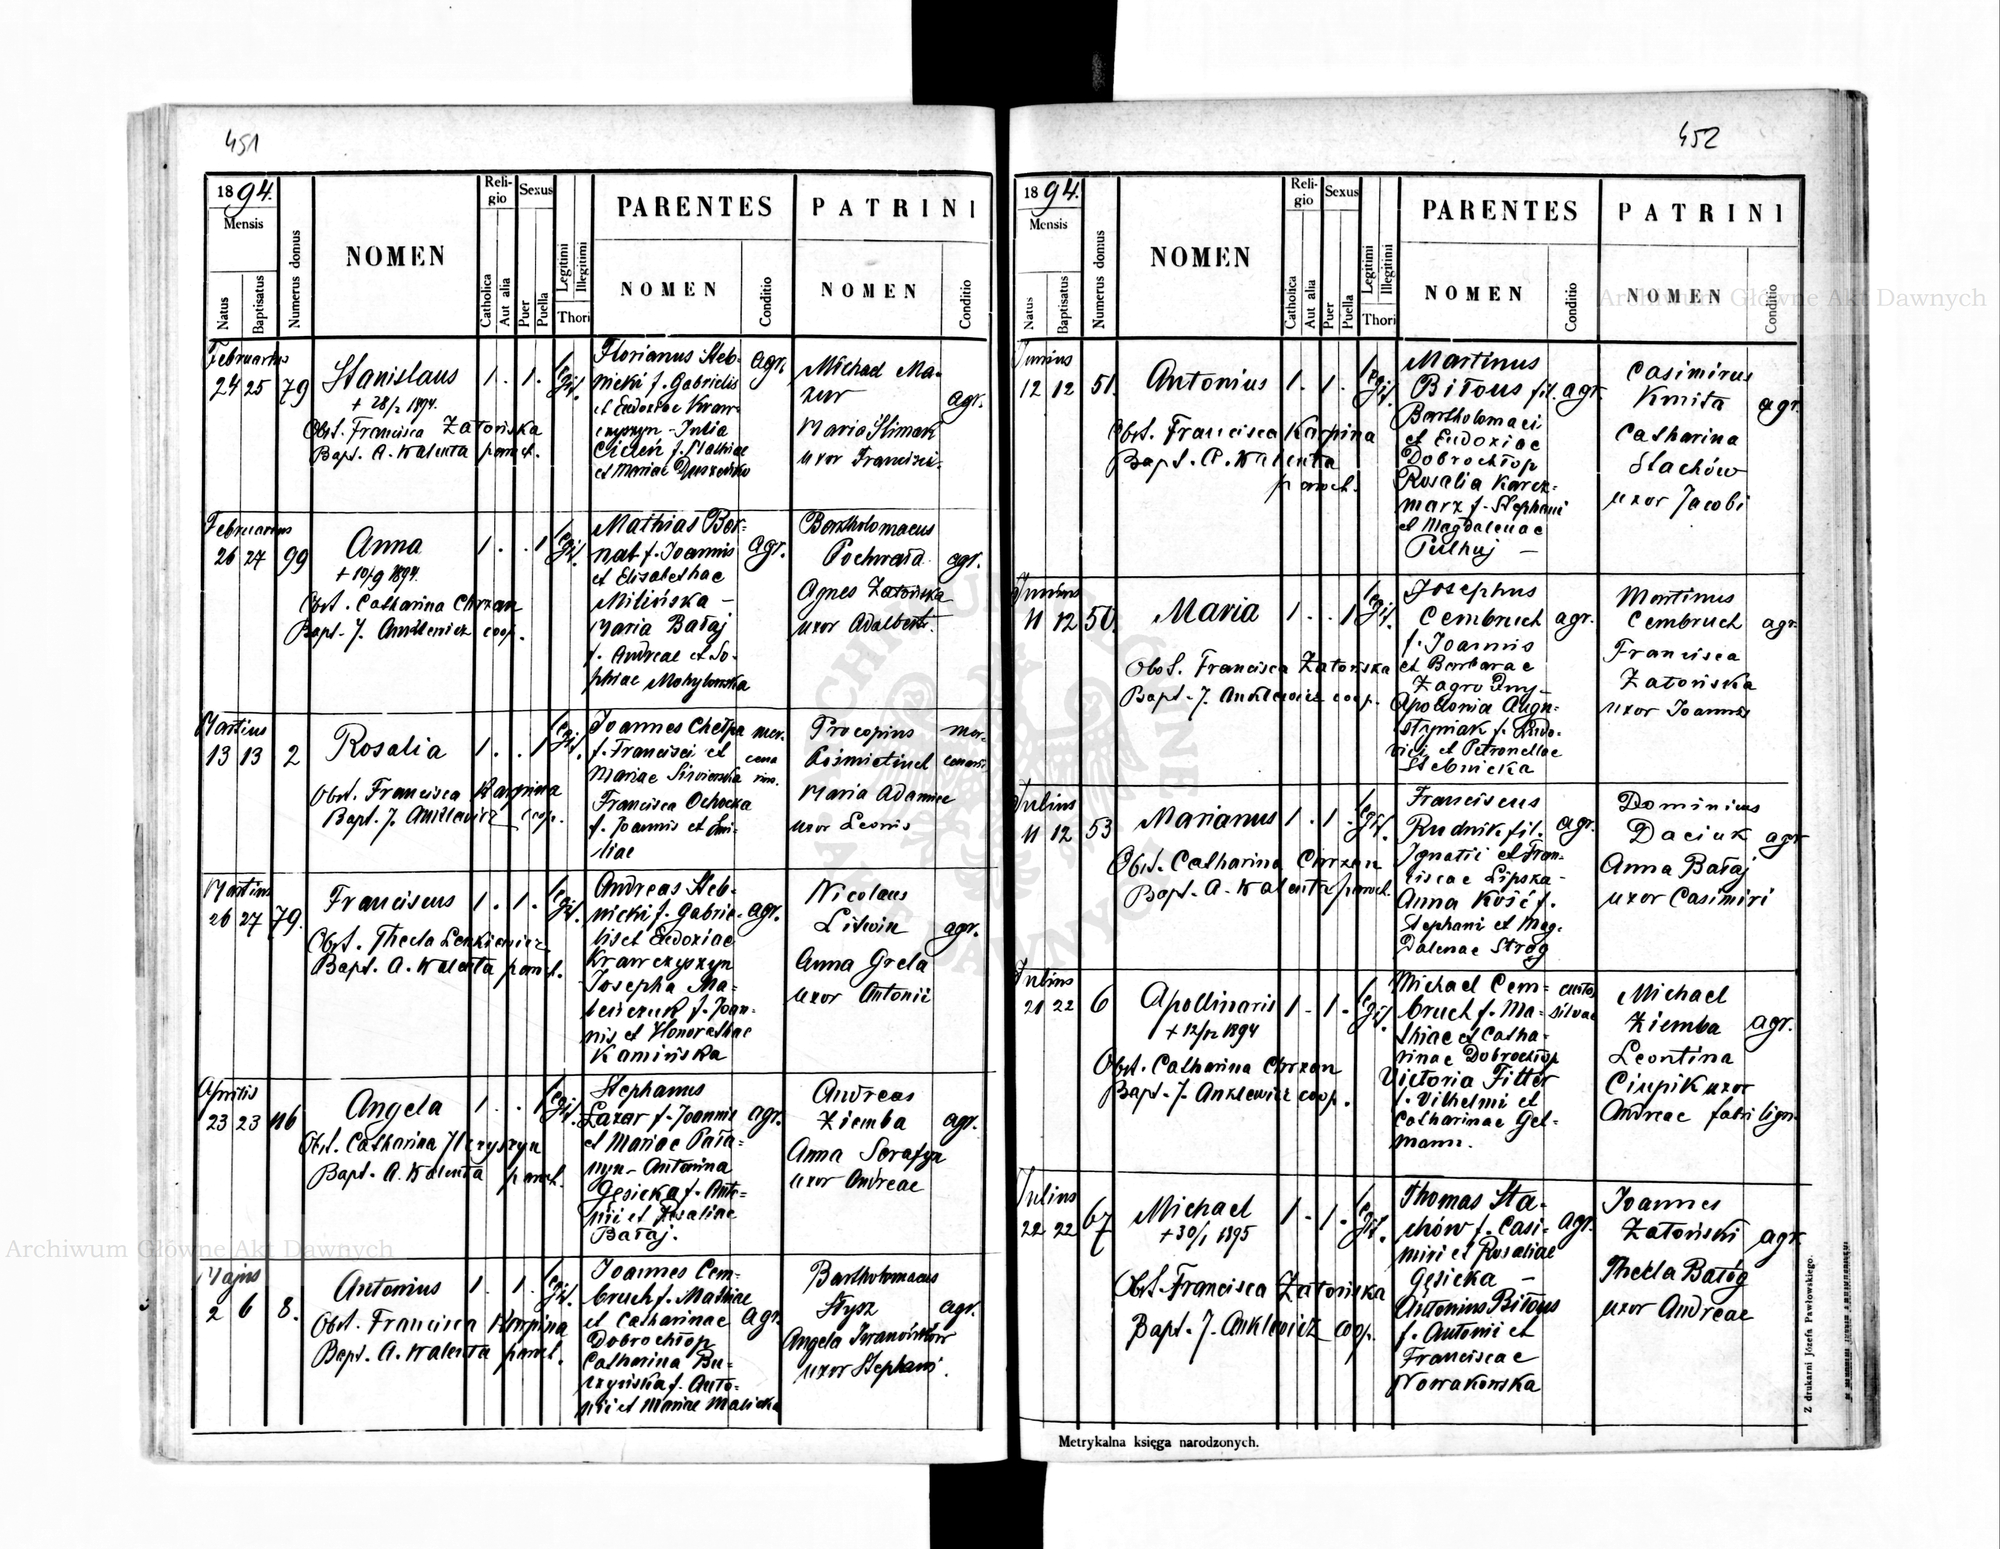 451
1894.
Mensis
Natus
Baptisatus
Numerus domus
NOMEN
Religio
Catholica
Aut alia
Sexus
Puer
Puella
Legitimi
Illegitimi
Thori
PARENTES
NOMEN
Conditio
PATRINI
NOMEN
Conditio
Februarius
24 25 79
Stanislaus
+ 28/2 1894.
Obst. Francisca Zatońska
Bapt. A. Walenta paroch.
1. 1. legit.
Florianus Steb-
nicki f. Gabrielis
et Eudoxiae Kraw-
czyszyn - Julia
Cicleń f. Mathiae
et Mariae
agr.
Michael Ma-
zur
Maria Slimak
uxor Francisci.
agr.
Februarius
26 27 99
Anna
+ 10/9 1894.
Obst. Catharina Chrzan
Bapt. J. Anklewicz coop.
1. . 1 legit.
Mathias Ber-
nat f. Joannis
et Elisabethae
Milińska -
Maria Bałaj
f. Andreae et So-
phiae Mohylowska
agr.
Bartholomaeus
Pochwała
Agnes Zatońska
uxor Adalberti.
agr.
Martius
13 13 2
Rosalia
Obst. Francisca Karpina
Bapt. J. Anklewicz coop.
1. . 1 legit.
Joannes Chełpa
f. Francisci et
Mariae
Francisca Ochocka
f. Joannis et Emi-
liae
mer-
cena
rius.
Procopius
Maria Adamiec
uxor Leonis
mer-
cenari
Martius
26 27 79.
Franciscus
Obst. Thecla Lenkiewicz
Bapt. A. Walenta paroch.
1. 1. legit.
Andreas Steb-
nicki f. Gabrie-
lis et Eudoxiae
Krawczyszyn
Josepha Ma-
f. Joan-
nis et Honorathae
Kamińska
agr.
Nicolaus
Litwin
Anna Greta
uxor Antonii
agr.
Aprilis
23 23 116
Angela
Obst. Catharina
Bapt. A. Walenta paroch.
1. . 1 legit.
Stephanus
Lazar f. Joannis
et Mariae Pała-
nyn - Antonina
Gęsicka f. Anto-
nii et Rosaliae
Bałaj.
agr.
Andreas
Ziemba
Anna Serafyn
uxor Andreae
agr.
Majus
2 6 8.
Antonius
Obst. Francisca Karpina
Bapt. A. Walenta paroch.
1. 1. legit.
Joannes Cem-
bruch f. Mathiae
et Catharinae
Dobrochłop
Catharina Bu-
czyńska f. Anto-
nii et Mariae Malicka
agr.
Bartholomaeus
Stysz
Angela Iwanówków
uxor Stephani.
agr.
452
1894.
Mensis
Natus
Baptisatus
Numerus domus
NOMEN
Religio
Catholica
Aut alia
Sexus
Puer
Puella
Legitimi
Illegitimi
Thori
PARENTES
NOMEN
Conditio
PATRINI
NOMEN
Conditio
Junius
12 12 51.
Antonius
Obst. Francisca Karpina
Bapt. A. Walenta
paroch.
1. 1. legit.
Martinus
Bitous fil.
Bartholomaei
et Eudoxiae
Dobrochłop
Rosalia Karcz-
marz f. Stephani
et Magdalenae
Pulhuj —
agr.
Casimirus
Kmita
Catharina
Stachów
uxor Jacobi
agr.
Junius
11 12 50.
Maria
Obst. Francisca Zatońska
Bapt. J. Anklewicz coop.
1. . 1 legit.
Josephus
Cembruch
f. Joannis
et Barbarae
Zagrodny —
Apollonia Augu-
styniak f. Ludo-
vici et Petronellae
Stebnicka
agr.
Martinus
Cembruch
Francisca
Zatońska
uxor Joannis
agr.
Julius
11 12 53
Marianus
Obst. Catharina Chrzan
Bapt. A. Walenta paroch.
1. 1. legit.
Franciscus
Rudnik fil.
Ignatii et Fran-
ciscae Lipska -
Anna Kość f.
Stephani et Mag-
dalenae Stróg
agr.
Dominicus
Daciuk
Anna Bałaj
uxor Casimiri
agr
Julius
21 22 6
Apollinaris
+ 12/12 1894
Obst. Catharina Chrzan
Bapt. J. Anklewicz coop.
1. 1. legit.
Michael Cem-
bruch f. Ma-
thiae et Catha-
rinae Dobrochłop
Victoria Fitter
f. Vilhelmi et
Catharinae Gel-
mann.
custos
silvae
Michael
Ziemba
Leontina
Ciupik uxor
Andreae fabri lign.
agr.
Julius
22 22 67
Michael
+ 30/1 1895
Obst. Francisca Zatońska
Bapt. J. Anklewicz coop.
1. 1. legit.
Thomas Sta-
chów f. Casi-
miri et Rosaliae
Gęsicka —
Antonina Bitous
f. Antonii et
Franciscae
Nowakowska
agr.
Joannes
Zatoński
Thecla Bałóg
uxor Andreae
agr.
Metrykalna księga narodzonych.
Z drukarni Józefa Pawłowskiego.
Archiwum Główne Akt Dawnych
Archiwum Główne Akt Dawnych
ARCHIWUM GŁÓWNE AKT DAWNYCH